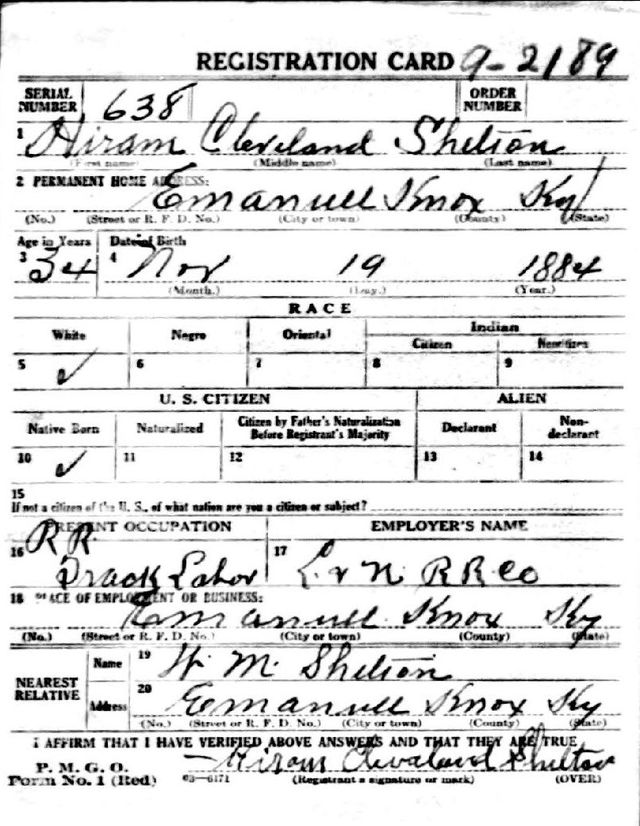 REGISTRATION CARD 9-2189
SERIAL NUMBER 638 ORDER NUMBER
1 Hiram Cleveland Shelton
(First name) (Middle name) (Last name)
2 PERMANENT HOME ADDRESS:
Emanuell Knox Ky
(No.) (Street or R. F. D. No.) (City or town) (County) (State)
Age in Years Date of Birth
3 34 4 Nov 19 1884
(Month.) (Day.) (Year.)
RACE
White Negro Oriental Indian
Citizen Noncitizen
5 ✓ 6 7 8 9
U. S. CITIZEN ALIEN
Native Born Naturalized Citizen by Father's Naturalization Before Registrant's Majority Declarant Non-declarant
10 ✓ 11 12 13 14
15
If not a citizen of the U. S., of what nation are you a citizen or subject?
PRESENT OCCUPATION EMPLOYER'S NAME
16 RR
Track Labor 17 L & N RR Co
18 PLACE OF EMPLOYMENT OR BUSINESS:
Emanuell Knox Ky
(No.) (Street or R. F. D. No.) (City or town) (County) (State)
NEAREST RELATIVE Name 19 W. M. Shelton
Address 20 Emanuell Knox Ky
(No.) (Street or R. F. D. No.) (City or town) (County) (State)
I AFFIRM THAT I HAVE VERIFIED ABOVE ANSWERS AND THAT THEY ARE TRUE
P. M. G. O.
Form No. 1 (Red) 03-6171 Hiram Cleveland Shelton
(Registrant's signature or mark) (OVER)